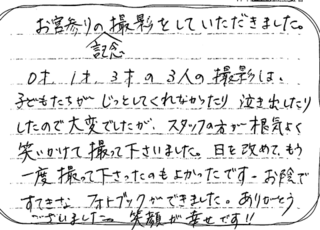 お宮参りの撮影をしていただきました。
記念
0才 1才 3才の3人の撮影は、
子どもたちがじっとしてくれなかったり 泣き出したり
したので大変でしたが、スタッフの方が根気よく
笑いかけて撮って下さいました。日を改めて、もう
一度撮って下さったのもよかったです。お陰で
すてきなフォトブックができました。ありがとう
ございました。笑顔が幸せです!!